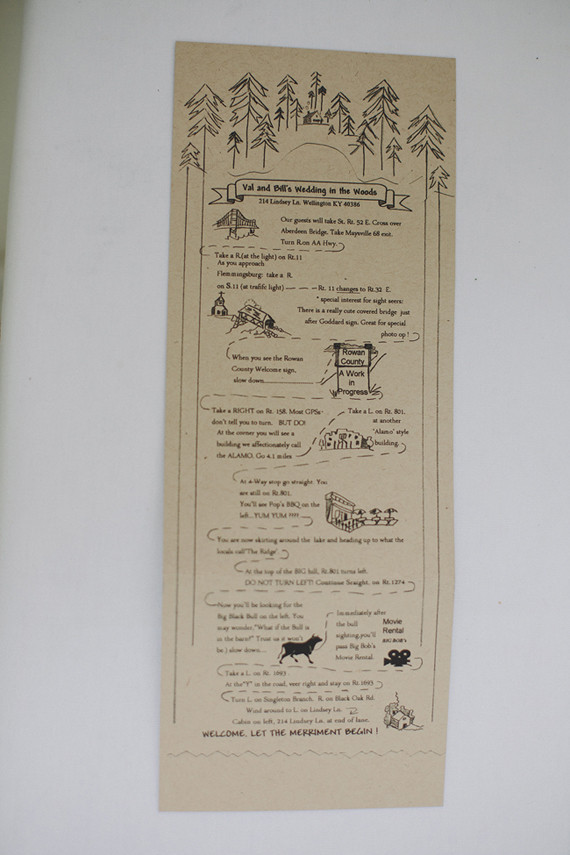 Val and Bill's Wedding in the Woods
214 Lindsey Ln. Wellington KY 40386
Our guests will take St. Rt. 52 E. Cross over
Aberdeen Bridge. Take Maysville 68 exit.
Turn R.on AA Hwy.
Take a R.(at the light) on Rt.11
As you approach
Flemmingsburg: take a R.
on S.11 (at traffic light)
Rt. 11 changes to Rt.32 E.
* special interest for sight seers:
There is a really cute covered bridge just
after Goddard sign. Great for special
photo op !
When you see the Rowan
County Welcome sign,
slow down
Rowan
County
A Work
in
Progress
Take a RIGHT on Rt. 158. Most GPSs
don't tell you to turn. BUT DO!
At the corner you will see a
building we affectionally call
the ALAMO. Go 4.1 miles
Take a L. on Rt. 801.
at another
'Alamo' style
building.
At 4-Way stop go straight. You
are still on Rt.801.
You'll see Pop's BBQ on the
left...YUM YUM !!!!
You are now skirting around the lake and heading up to what the
locals call'The Ridge'.
At the top of the BIG hill, Rt.801 turns left.
DO NOT TURN LEFT! Continue Straight, on Rt.1274
Now you'll be looking for the
Big Black Bull on the left. You
may wonder,"What if the Bull is
in the barn?" Trust us it won't
be.) slow down...
Immediately after
the bull
sighting,you'll
pass Big Bob's
Movie Rental.
Movie
Rental
BIG BOB'S
Take a L. on Rt. 1693 .
At the"Y" in the road, veer right and stay on Rt.1693
Turn L. on Singleton Branch, R. on Black Oak Rd.
Wind around to L. on Lindsey Ln.
Cabin on left, 214 Lindsey Ln. at end of lane.
WELCOME, LET THE MERRIMENT BEGIN !